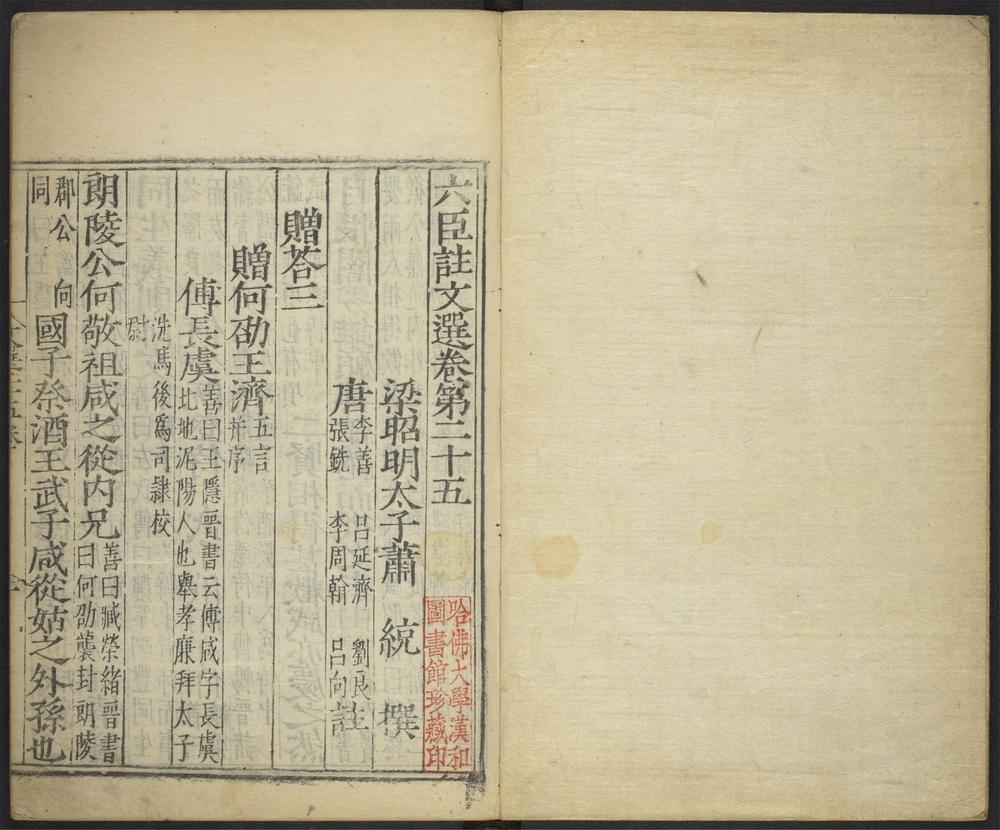 六臣註文選卷第二十五
梁昭明太子蕭 統 撰
唐
李善 呂延濟 劉良
張銑 李周翰 呂向註
贈荅三
贈何劭王濟
五言
并序
傅長虞
善曰王隱晉書云傅咸字長虞
北地泥陽人也舉孝廉拜太子
洗馬後爲司隸校
尉
朗陵公何敬祖咸之從内兄
善曰臧榮緒晉書
曰何劭襲封朗陵
郡公 向
同
國子祭酒王武子咸從姑之外孫也
哈佛大學漢和
圖書館珍藏印